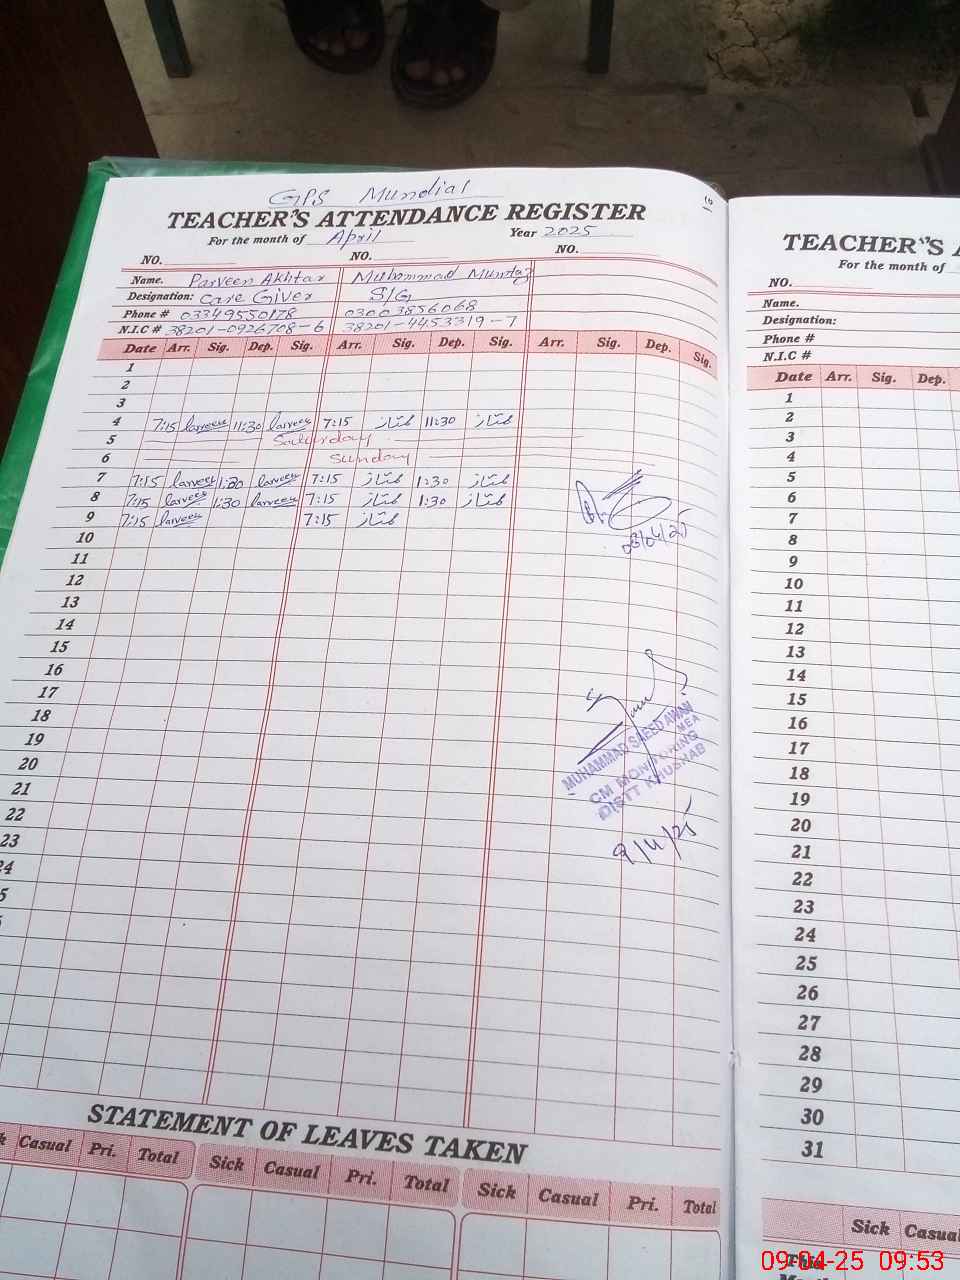 GPS Mundial
10
TEACHER'S ATTENDANCE REGISTER
For the month of April Year 2025
NO. NO. NO.
Name. Parveen Akhtar Muhammad Mumtaz
Designation: Care Giver S/G
Phone # 03349550178 03003856068
N.I.C # 38201-0926708-6 38201-4453319-7
Date Arr. Sig. Dep. Sig. Arr. Sig. Dep. Sig. Arr. Sig. Dep. Sig.
1
2
3
4 7:15 Parveen 11:30 Parveen 7:15 ممتاز 11:30 ممتاز
5 Saturday
6 Sunday
7 7:15 Parveen 1:30 Parveen 7:15 ممتاز 1:30 ممتاز
8 7:15 Parveen 1:30 Parveen 7:15 ممتاز 1:30 ممتاز
9 7:15 Parveen 7:15 ممتاز
08/04/25
10
11
12
13
14
15
16
17
18
19
20
21
22
23
24
5
MUHAMMAD SAEED AWAN
MEA
CM MONITORING
DISTT KHUSHAB
9/4/25
STATEMENT OF LEAVES TAKEN
k Casual Pri. Total Sick Casual Pri. Total Sick Casual Pri. Total
TEACHER'S A
For the month of
NO.
Name.
Designation:
Phone #
N.I.C #
Date Arr. Sig. Dep.
1
2
3
4
5
6
7
8
9
10
11
12
13
14
15
16
17
18
19
20
21
22
23
24
25
26
27
28
29
30
31
Sick Casual
This
09-04-25 09:53